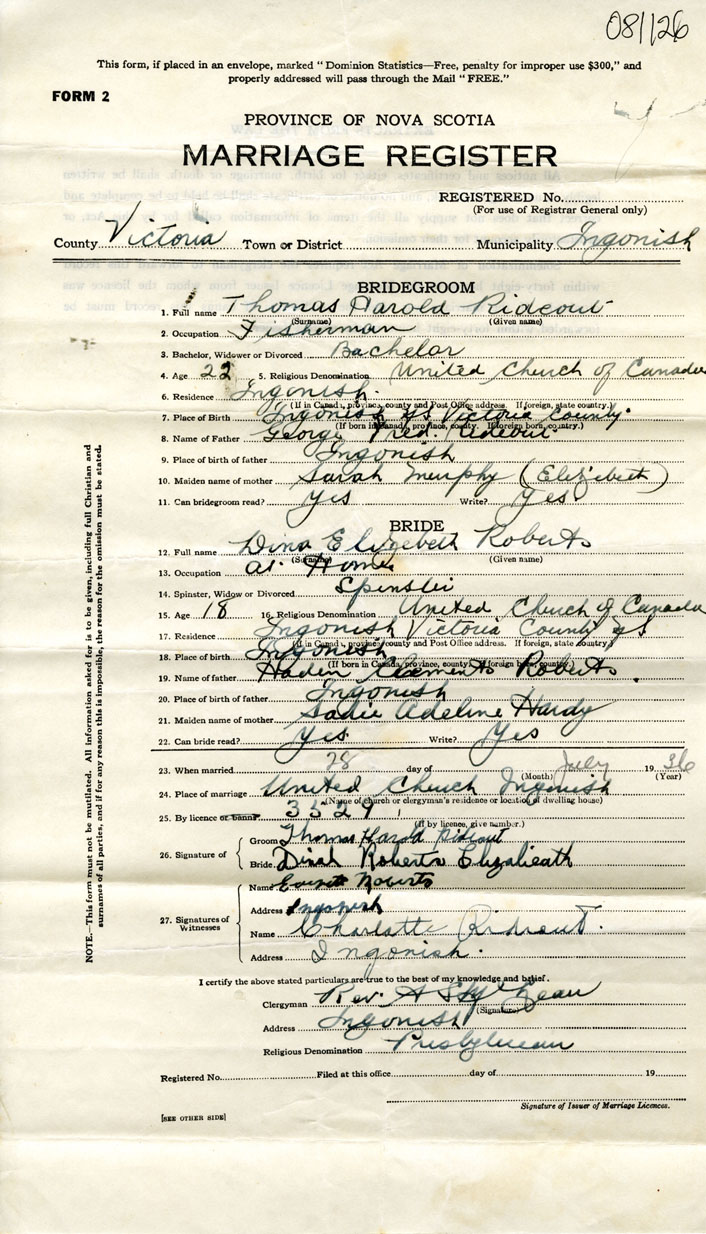 081126
This form, if placed in an envelope, marked "Dominion Statistics—Free, penalty for improper use $300," and
properly addressed will pass through the Mail "FREE."
FORM 2
PROVINCE OF NOVA SCOTIA
MARRIAGE REGISTER
REGISTERED No.
(For use of Registrar General only)
County Victoria Town or District Municipality Ingonish
BRIDEGROOM
1. Full name Thomas Harold Rideout
(Surname) (Given name)
2. Occupation Fisherman
3. Bachelor, Widower or Divorced Bachelor
4. Age 22 5. Religious Denomination United Church of Canada
6. Residence Ingonish.
(If in Canada, province, county and Post Office address. If foreign, state country.)
7. Place of Birth Ingonish Victoria County.
(If born in Canada, province, county. If foreign born, country.)
8. Name of Father George Fred. Rideout
9. Place of birth of father Ingonish
10. Maiden name of mother Sarah Murphy (Elizebeth)
11. Can bridegroom read? Yes Write? Yes
BRIDE
12. Full name Dina Elizebeth Roberts
(Surname) (Given name)
13. Occupation at Home
14. Spinster, Widow or Divorced Spinster
15. Age 18 16. Religious Denomination United Church of Canada
17. Residence Ingonish Victoria County
(If in Canada, province, county and Post Office address. If foreign, state country.)
18. Place of birth Ingonish
(If born in Canada, province, county. If foreign born, country.)
19. Name of father Haden Clements Roberts.
20. Place of birth of father Ingonish
21. Maiden name of mother Sadie Adeline Hardy
22. Can bride read? Yes. Write? Yes
23. When married 28 day of July 1936
(Month) (Year)
24. Place of marriage United Church Ingonish
(Name of church or clergyman's residence or location of dwelling house)
25. By licence or banns 3529
(If by licence, give number.)
26. Signature of
Groom Thomas Harold Rideout
Bride Dinah Roberts
27. Signatures of Witnesses
Name
Address Ingonish
Name Charlotte Rideout.
Address Ingonish.
I certify the above stated particulars are true to the best of my knowledge and belief.
Clergyman Rev. A
(Signature)
Address Ingonish
Religious Denomination Presbyterian
Registered No. Filed at this office day of 19
Signature of Issuer of Marriage Licences.
[SEE OTHER SIDE]
NOTE.—This form must not be mutilated. All information asked for is to be given, including full Christian and
surnames of all parties, and if for any reason this is impossible, the reason for the omission must be stated.